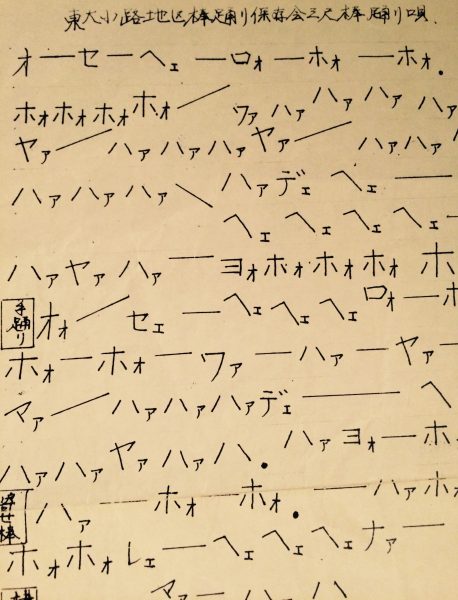 東大小路地区棒踊り保存会三尺棒踊り唄.
オーセーヘェーロォーホォーホォ.
ホォホォホォホォ／ワァハァハァハァハァ
ヤァ／ハァハァハァヤァ／ハァハァハ
ハァハァハァ＼ハァデェヘェー
ヘェヘェヘェヘェー
ハァヤァハァーヨォホォホォホォホ
手踊り
オォ／セェーヘェヘェヘェロォーホ
ホォーホォーワァーハァーヤァー
マァ／ハァハァハァデェーヘ
ハァハァヤァハァハ.ハァヨォーホ
寄せ棒
ハァーホォホォ.ーハァホ
ホォホォレェーヘェヘェヘェナァー
マァーハァハ